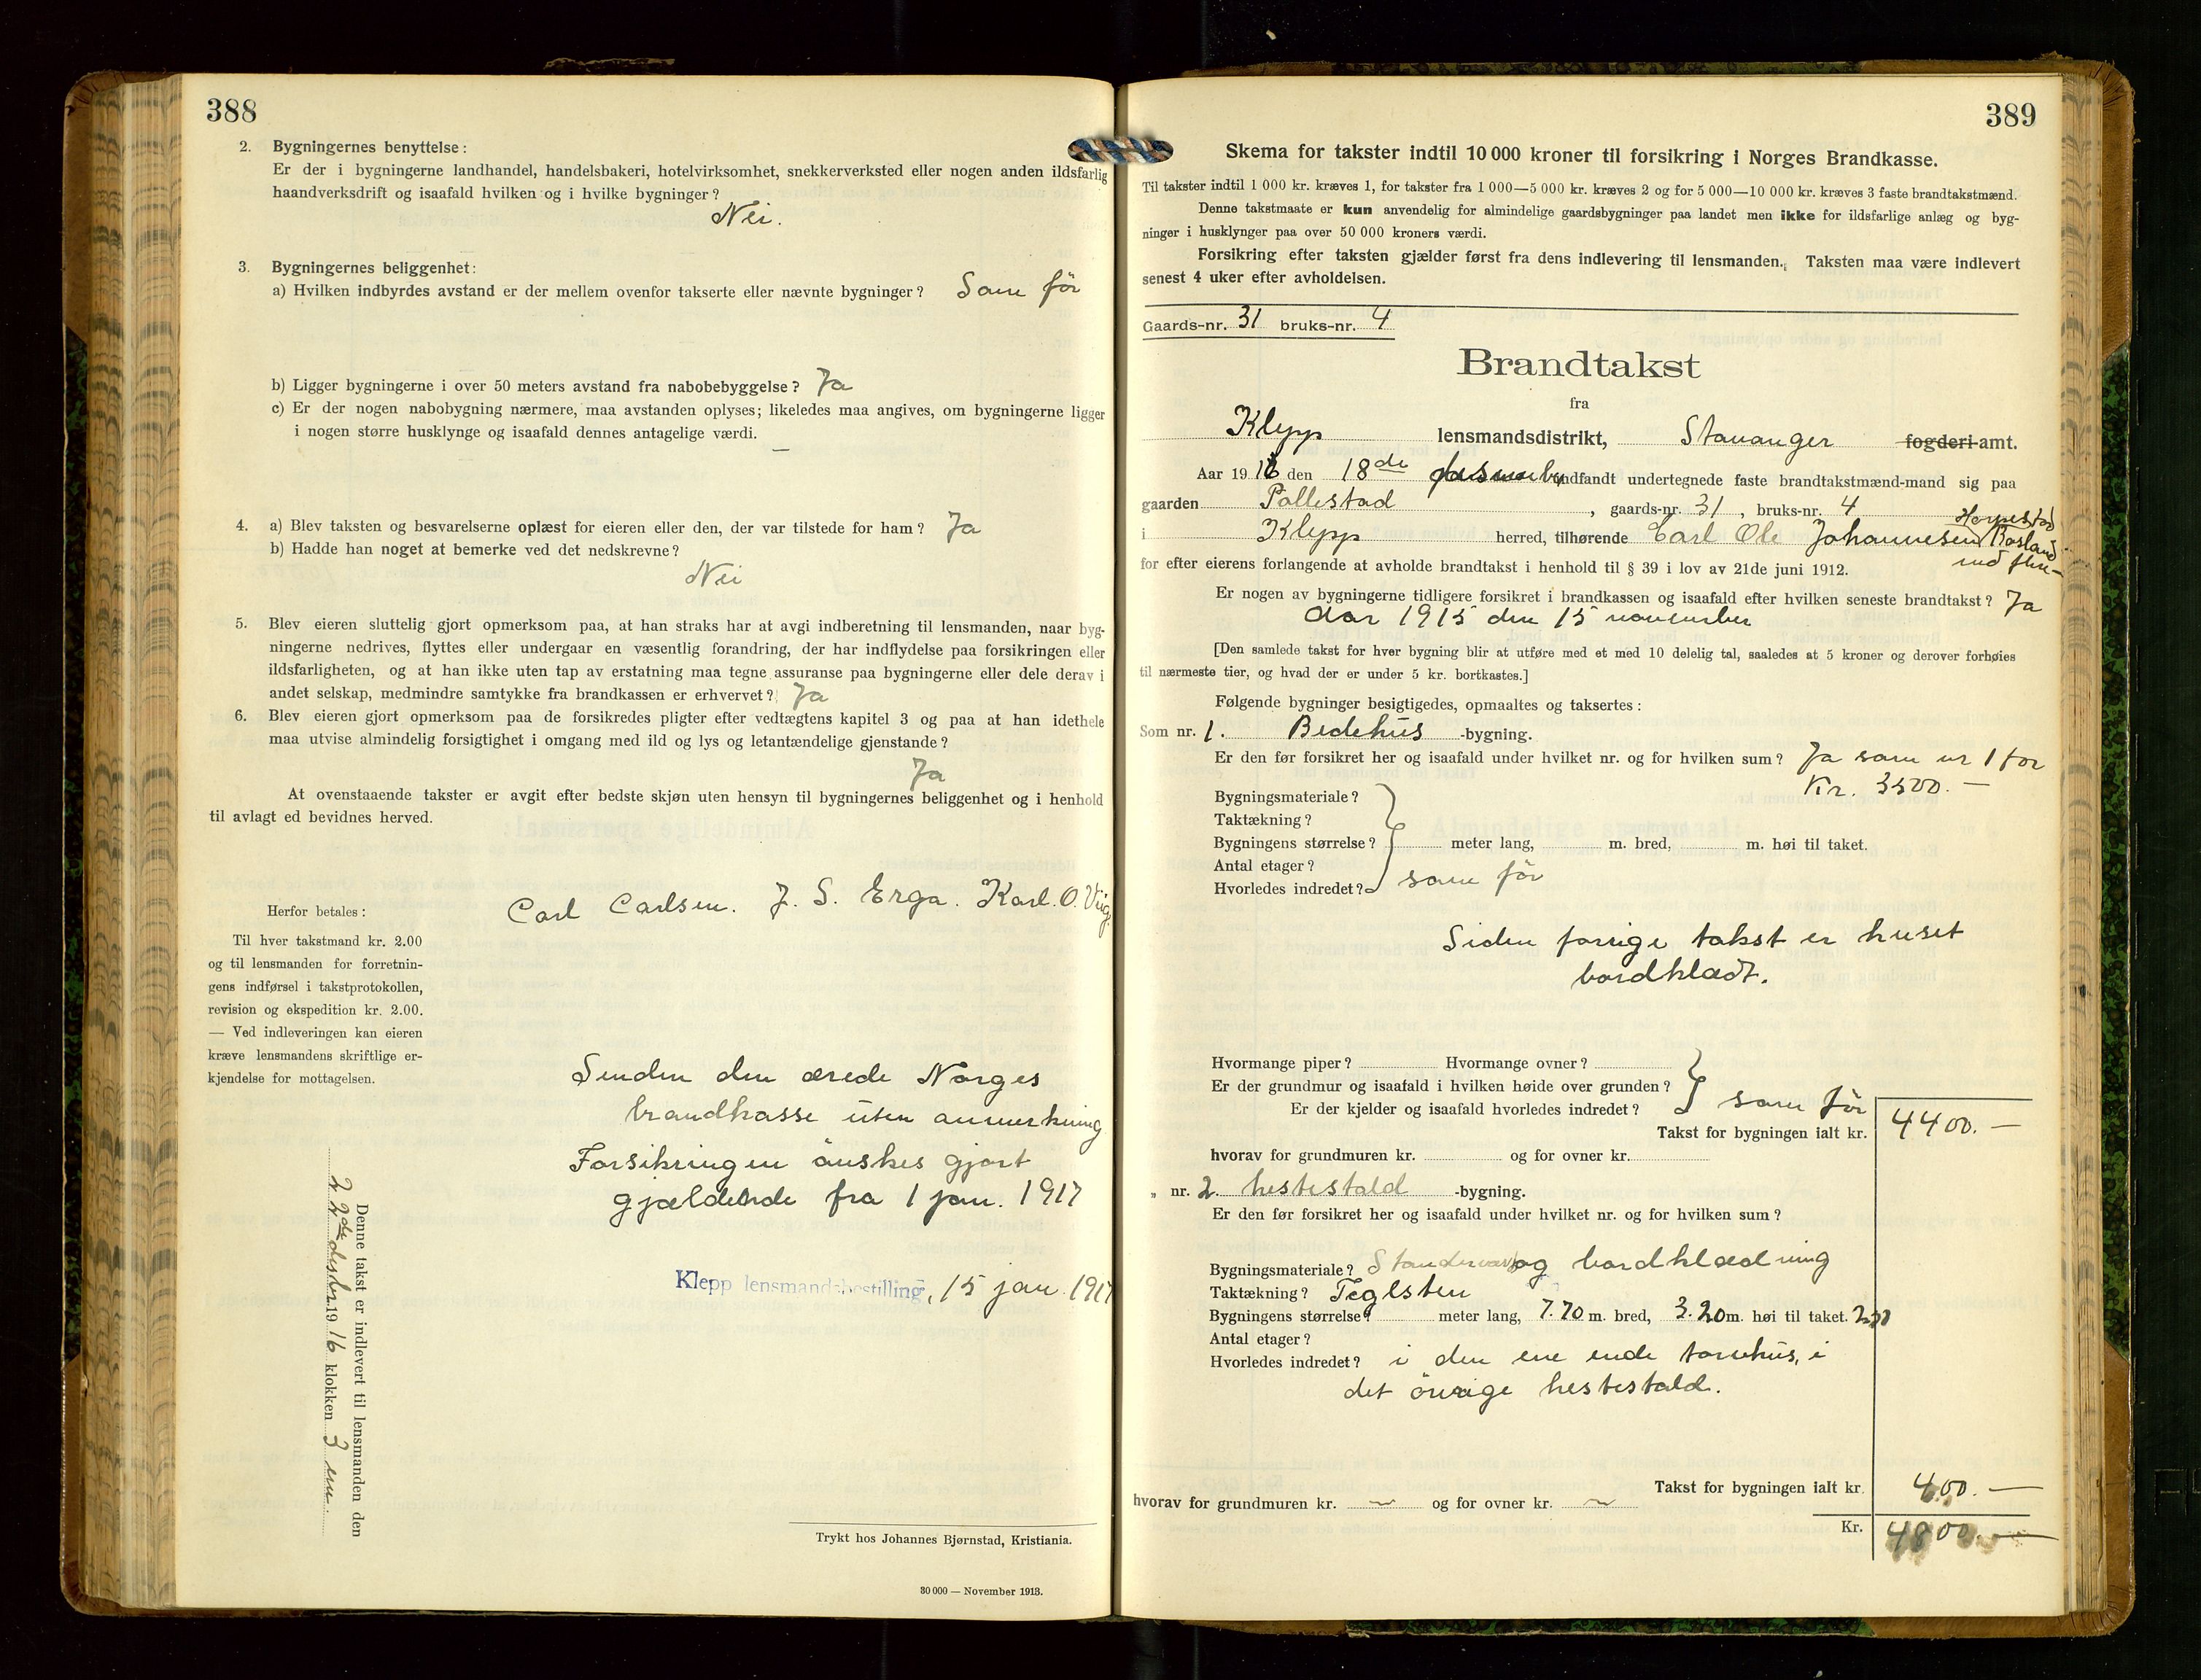 388
2. Bygningernes benyttelse:
Er der i bygningerne landhandel, handelsbakeri, hotelvirksomhet, snekkerverksted eller nogen anden ildsfarlig
haandverksdrift og isaafald hvilken og i hvilke bygninger?
Nei.
3. Bygningernes beliggenhet:
a) Hvilken indbyrdes avstand er der mellem ovenfor takserte eller nævnte bygninger? Som för
b) Ligger bygningerne i over 50 meters avstand fra nabobebyggelse? Ja
c) Er der nogen nabobygning nærmere, maa avstanden oplyses; likeledes maa angives, om bygningerne ligger
i nogen større husklynge og isaafald dennes antagelige værdi.
—
4. a) Blev taksten og besvarelserne oplæst for eieren eller den, der var tilstede for ham? Ja
b) Hadde han noget at bemerke ved det nedskrevne?
Nei
5. Blev eieren sluttelig gjort opmerksom paa, at han straks har at avgi indberetning til lensmanden, naar byg-
ningerne nedrives, flyttes eller undergaar en væsentlig forandring, der har indflydelse paa forsikringen eller
ildsfarligheten, og at han ikke uten tap av erstatning maa tegne assuranse paa bygningerne eller dele derav i
andet selskap, medmindre samtykke fra brandkassen er erhvervet? Ja
6. Blev eieren gjort opmerksom paa de forsikredes pligter efter vedtægtens kapitel 3 og paa at han idethele
maa utvise almindelig forsigtighet i omgang med ild og lys og letantændelige gjenstande?
Ja
At ovenstaaende takster er avgit efter bedste skjøn uten hensyn til bygningernes beliggenhet og i henhold
til avlagt ed bevidnes herved.
Carl Carlsen. J. S. Erga. Karl. O.
Herfor betales:
Til hver takstmand kr. 2.00
og til lensmanden for forretnin-
gens indførsel i takstprotokollen,
revision og ekspedition kr. 2.00.
— Ved indleveringen kan eieren
kræve lensmandens skriftlige er-
kjendelse for mottagelsen.
Sendes den ærede Norges
brandkasse uten anmerkning
Forsikringen önskes gjort
gjældende fra 1 jan. 1917
Klepp lensmandsbestilling, 15 jan. 1917
Denne takst er indlevert til lensmanden den
22de desbr. 1916 klokken 3 em.
Trykt hos Johannes Bjørnstad, Kristiania.
30 000 — November 1913.
389
Skema for takster indtil 10 000 kroner til forsikring i Norges Brandkasse.
Til takster indtil 1 000 kr. kræves 1, for takster fra 1 000—5 000 kr. kræves 2 og for 5 000—10 000 kr. kræves 3 faste brandtakstmænd.
Denne takstmaate er kun anvendelig for almindelige gaardsbygninger paa landet men ikke for ildsfarlige anlæg og byg-
ninger i husklynger paa over 50 000 kroners værdi.
Forsikring efter taksten gjælder først fra dens indlevering til lensmanden. Taksten maa være indlevert
senest 4 uker efter avholdelsen.
Gaards-nr. 31 bruks-nr. 4
Brandtakst
fra
Klepp lensmandsdistrikt, Stavanger fogderi-amt.
Aar 1916 den 18de desember indfandt undertegnede faste brandtakstmænd-mand sig paa
gaarden Pollestad, gaards-nr. 31, bruks-nr. 4
i Klepp herred, tilhørende Carl Ole Johannesen
for efter eierens forlangende at avholde brandtakst i henhold til § 39 i lov av 21de juni 1912.
Er nogen av bygningerne tidligere forsikret i brandkassen og isaafald efter hvilken seneste brandtakst? Ja
Aar 1915 den 15 november
[Den samlede takst for hver bygning blir at utføre med et med 10 delelig tal, saaledes at 5 kroner og derover forhøies
til nærmeste tier, og hvad der er under 5 kr. bortkastes.]
Følgende bygninger besigtigedes, opmaaltes og taksertes:
Som nr. 1. Bedehus -bygning.
Er den før forsikret her og isaafald under hvilket nr. og for hvilken sum? Ja som nr 1 for
Kr. 3500.—
Bygningsmateriale?
Taktækning?
Bygningens størrelse? meter lang, m. bred, m. høi til taket.
Antal etager?
Hvorledes indredet? som för
Siden forrige takst er huset
bordklædt.
Hvormange piper? Hvormange ovner?
Er der grundmur og isaafald i hvilken høide over grunden?
Er der kjelder og isaafald hvorledes indredet? som för
Takst for bygningen ialt kr. 4400.—
hvorav for grundmuren kr. og for ovner kr.
„ nr. 2. hestestald -bygning.
Er den før forsikret her og isaafald under hvilket nr. og for hvilken sum?
Bygningsmateriale? og bordklædning
Taktækning? Teglsten
Bygningens størrelse? meter lang, 7.70 m. bred, 3.20 m. høi til taket.
Antal etager?
Hvorledes indredet? i den ene ende torvehus, i
det övrige hestestald.
Takst for bygningen ialt kr. 400.—
hvorav for grundmuren kr. ~ og for ovner kr. ~
Kr. 4800.—